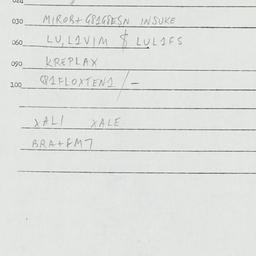 030 MIROB+ G81G8ESN INSUKE
060 LU,L1VIM $ LUL1FS
090 KREPLAX
100 Q1FLOXTEN1/-
XALI XALE
BRA+FM7